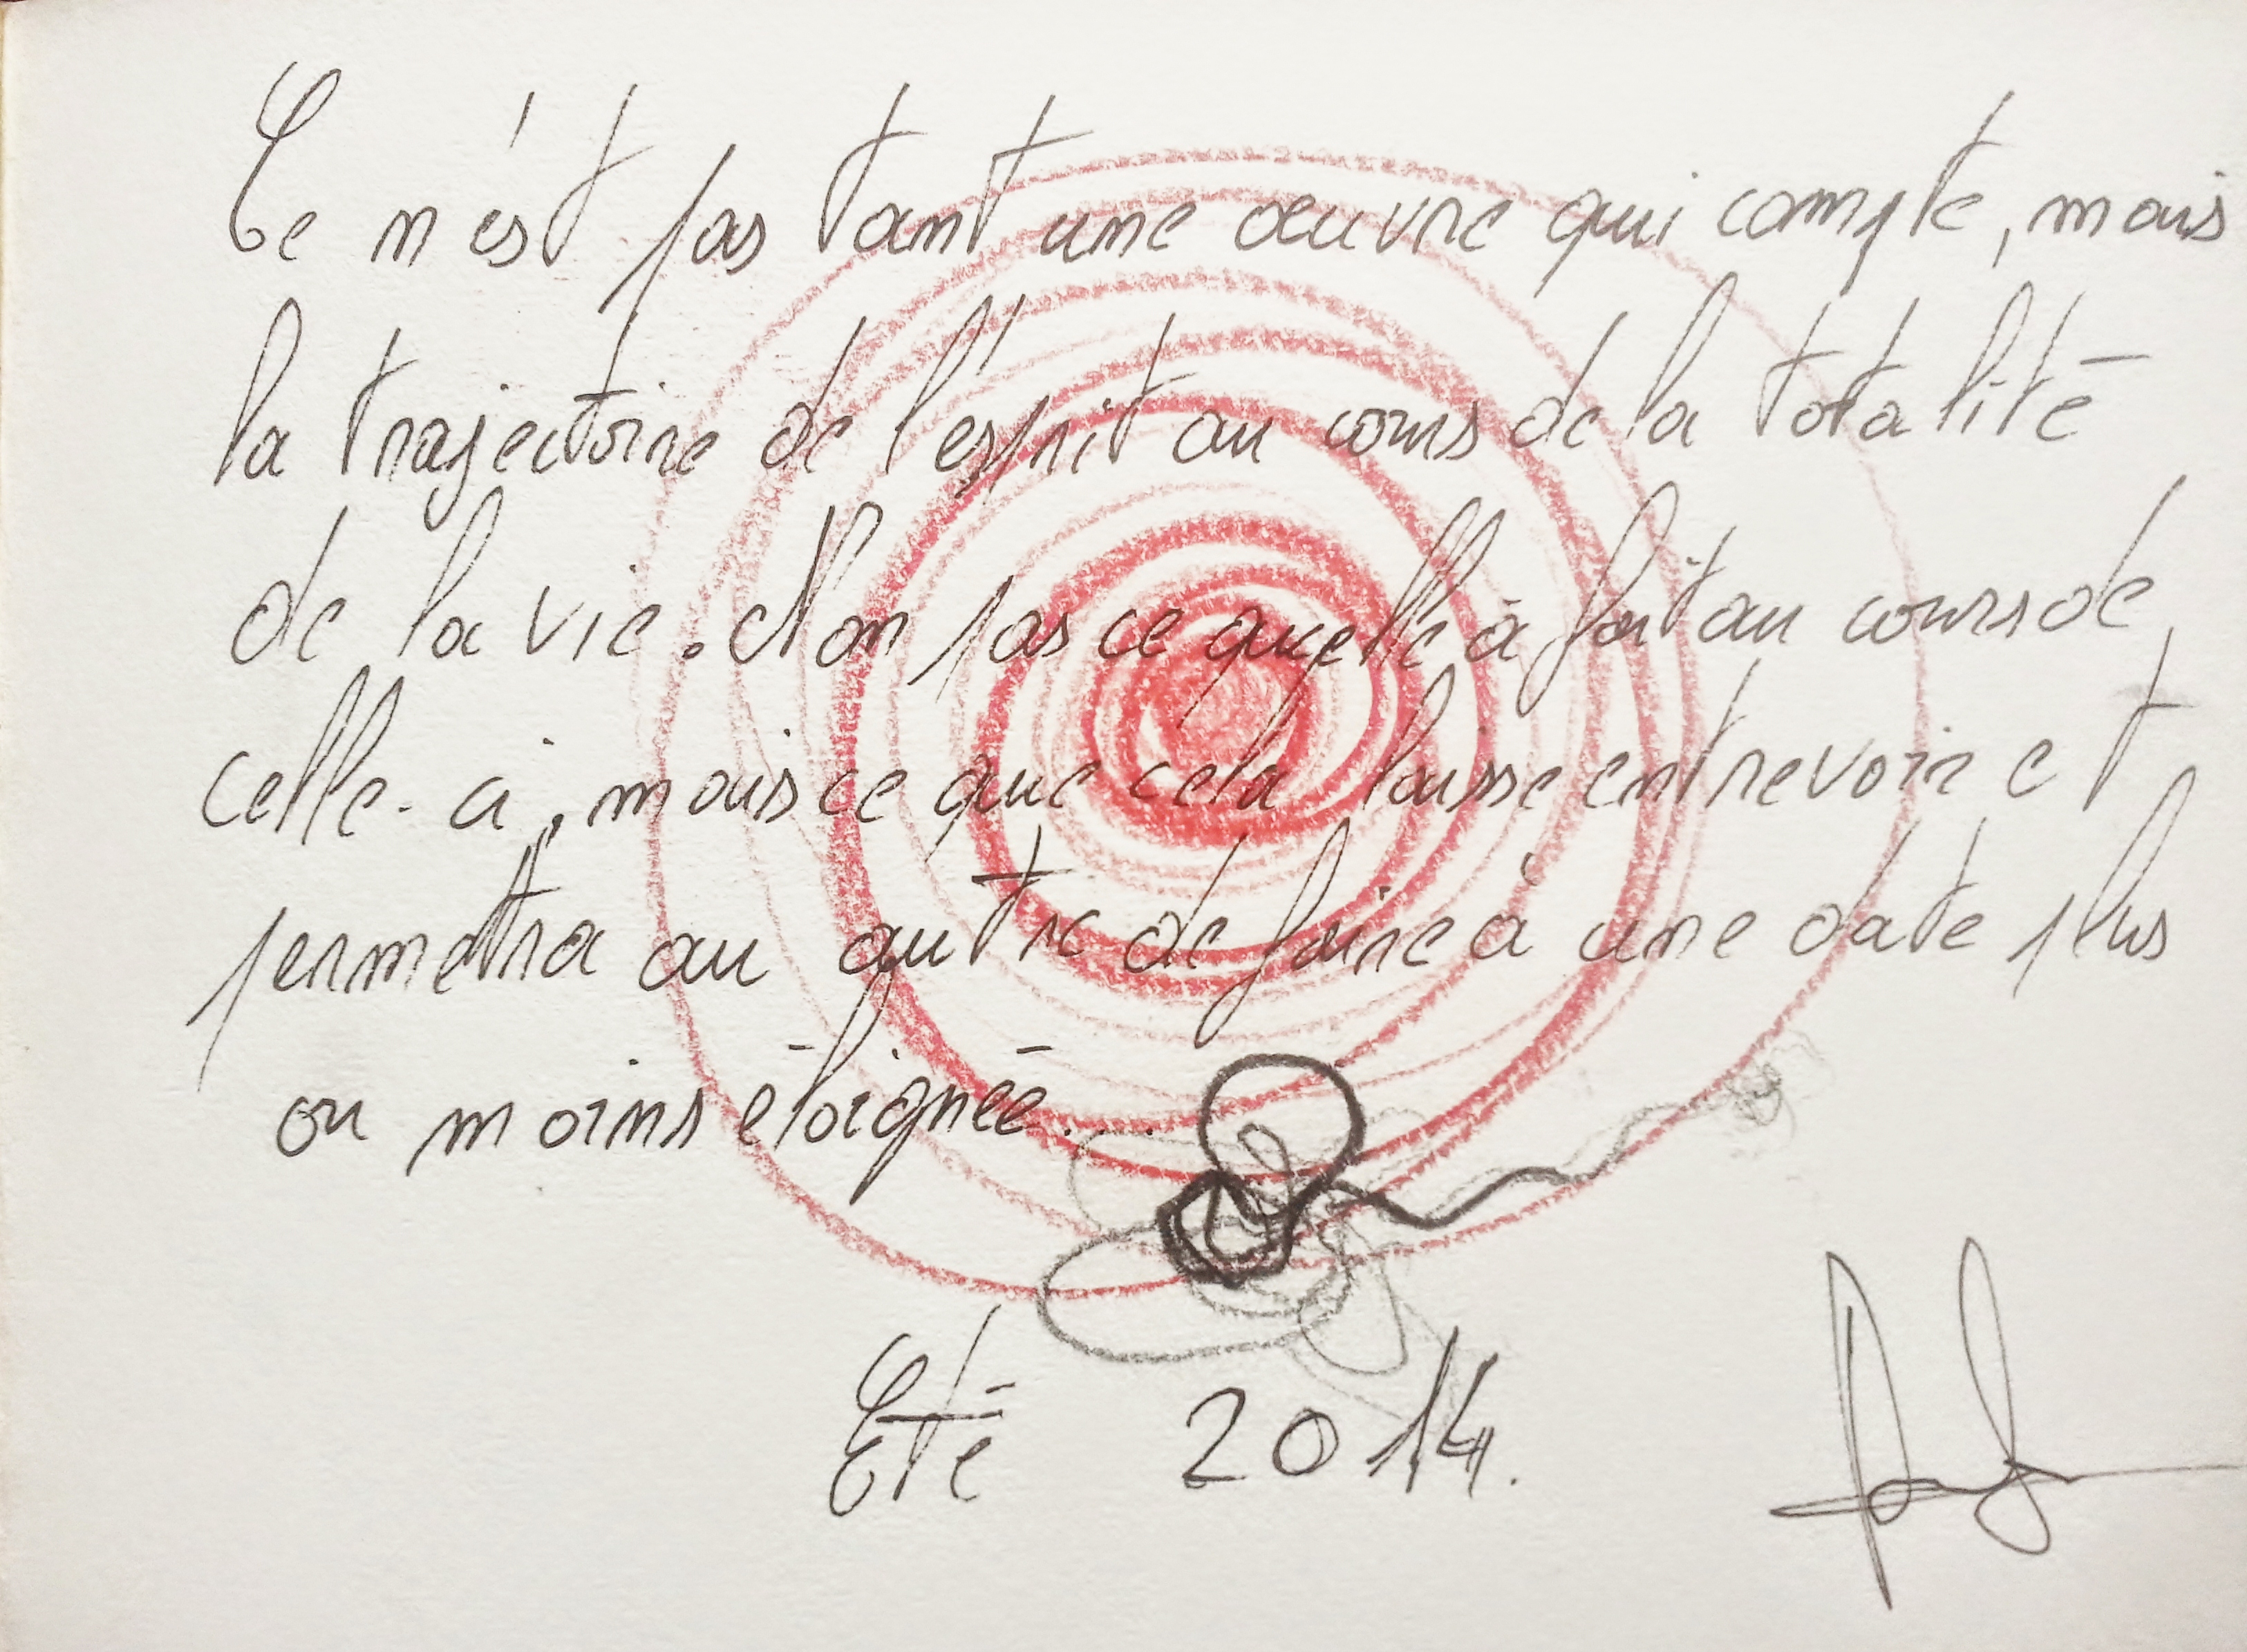 Ce n'est pas tant une œuvre qui compte, mais
la trajectoire de l'esprit au cours de la totalité
de la vie. Non pas ce quelle à fait au cours de
celle-ci, mais ce que cela laisse entrevoir et
permettra au autre de faire à une date plus
ou moins éloignée...
Eté 2014.